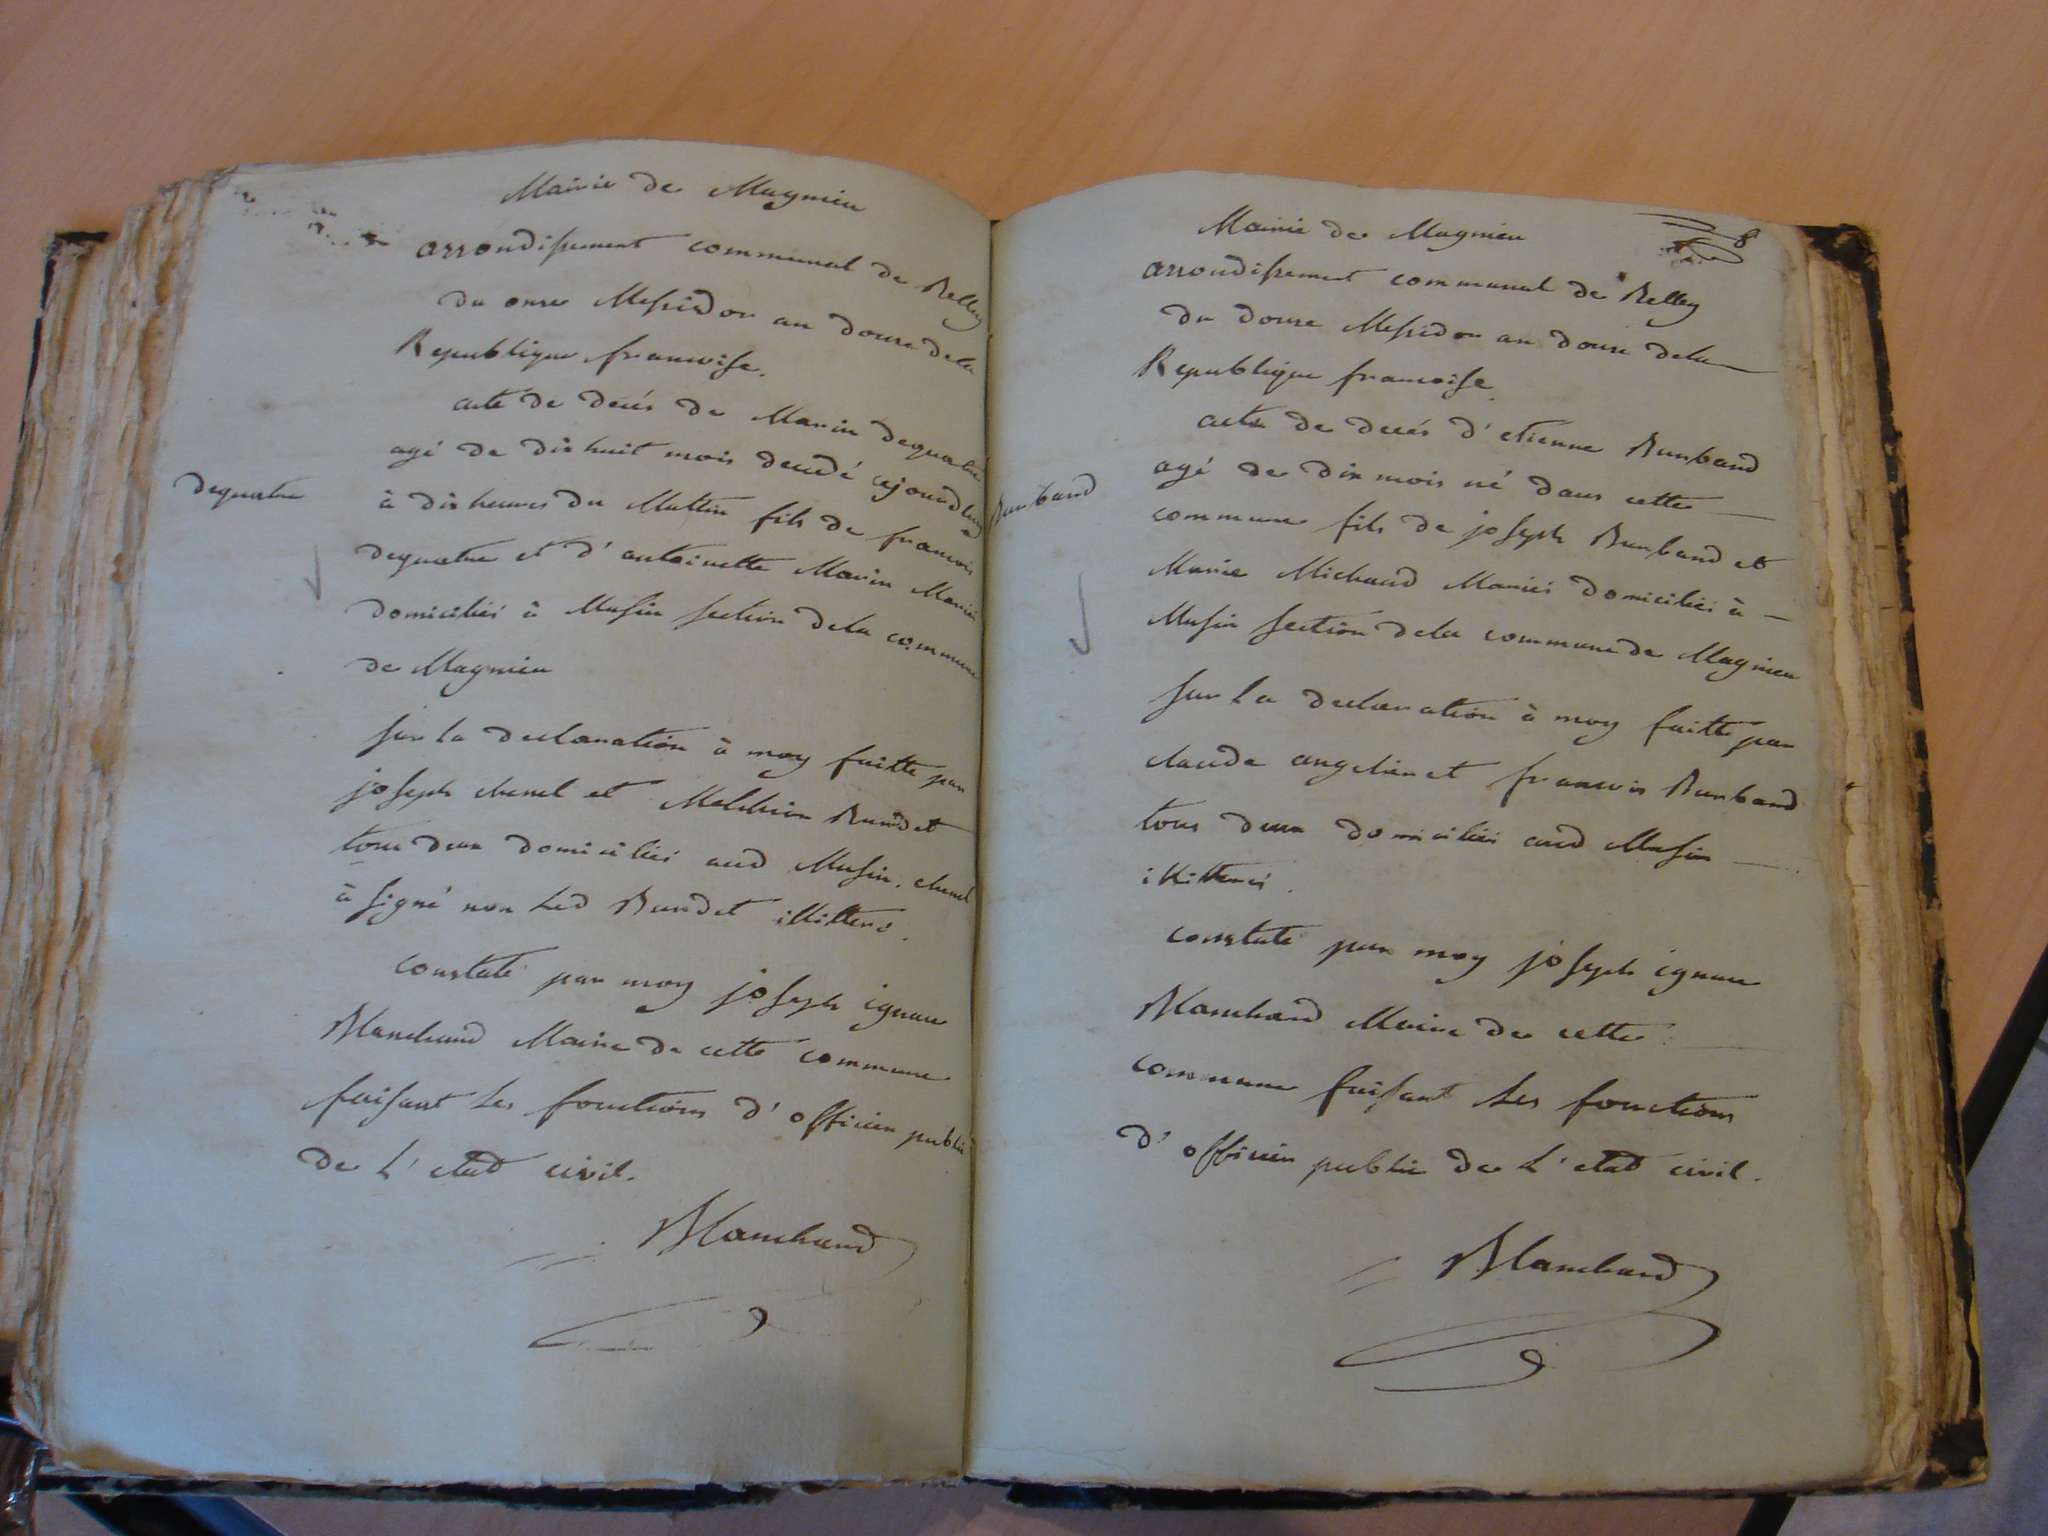 Mairie de Magnieu
arrondissement communal de Belley
du onze Messidor an douze dela
Republique francoise.
acte de decés de Marin dequatre
agé de dix huit mois decedé cejourdhuy
à dix heures du Mattin fils de francois
dequatre et d'antoinette Marin Mariés
domiciliés à Musin section dela commune
de Magnieu
sur la declaration à moy faitte par
joseph chenel et Melchior Burdet
tous deux domiciliés aud Musin. chenel
à signé non led Burdet illitteré.
constaté par moy joseph ignace
Blanchard Maire de cette commune
faisant les fonctions d'officier public
de L'etat civil.
Blanchard
dequatre
8
Mairie de Magnieu
arrondissement communal de Belley
du douze Messidor an douze dela
Republique francoise.
acte de decés d'etienne Burband
agé de dix mois né dans cette
commune fils de joseph Burband et
Marie Michaud Mariés domiciliés à
Musin section dela commune de Magnieu
sur la declaration à moy faitte par
claude et francois Burband
tous deux domiciliés aud Musin
illitterés.
constaté par moy joseph ignace
Blanchard Maire de cette
commune faisant les fonctions
d'officier public de L'etat civil.
Blanchard
Burband